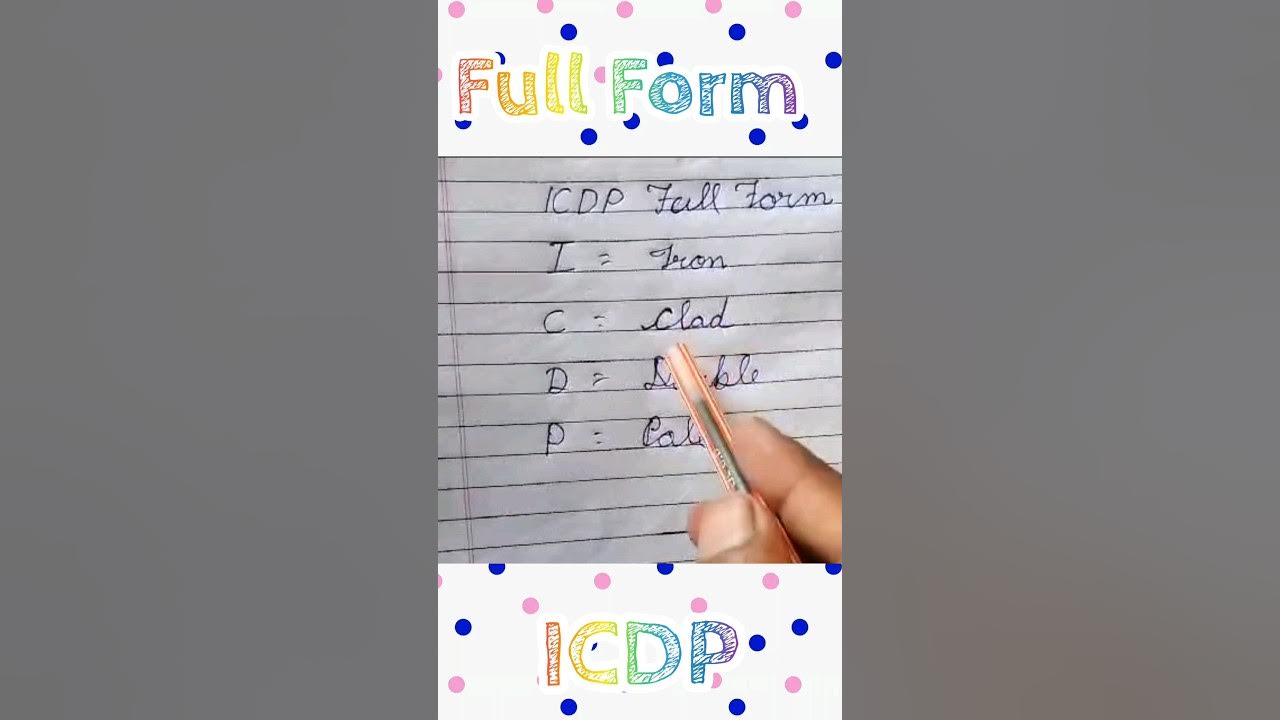 Full Form
ICDP Full Form
I = Iron
C = Clad
D =
P =
ICDP